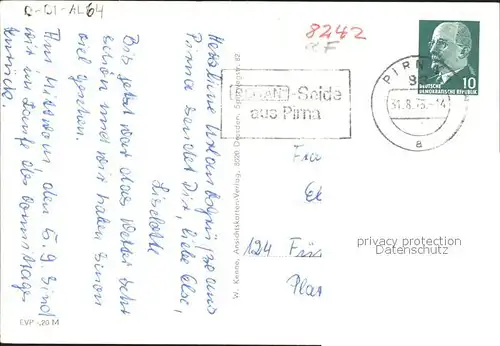 D-DI-AL64
8242
Herzliche Urlaubsgrüße aus
Pirna sendet Dir, liebe Else,
Liselotte
Bis jetzt war das Wetter sehr
schön und wir haben schon
viel gesehen.
Am Mittwoch, den 5.9. sind
wir im Laufe des Vormittages
zurück.
EVP 0,20 M
W. Kenne, Ansichtskarten-Verlag, 8020 Dresden,
-Seide
aus Pirna
PIRNA
31.8.73.-14
a
10
DEUTSCHE
DEMOKRATISCHE REPUBLIK
Fra
El
124 Für
Plat
privacy protection
Datenschutz